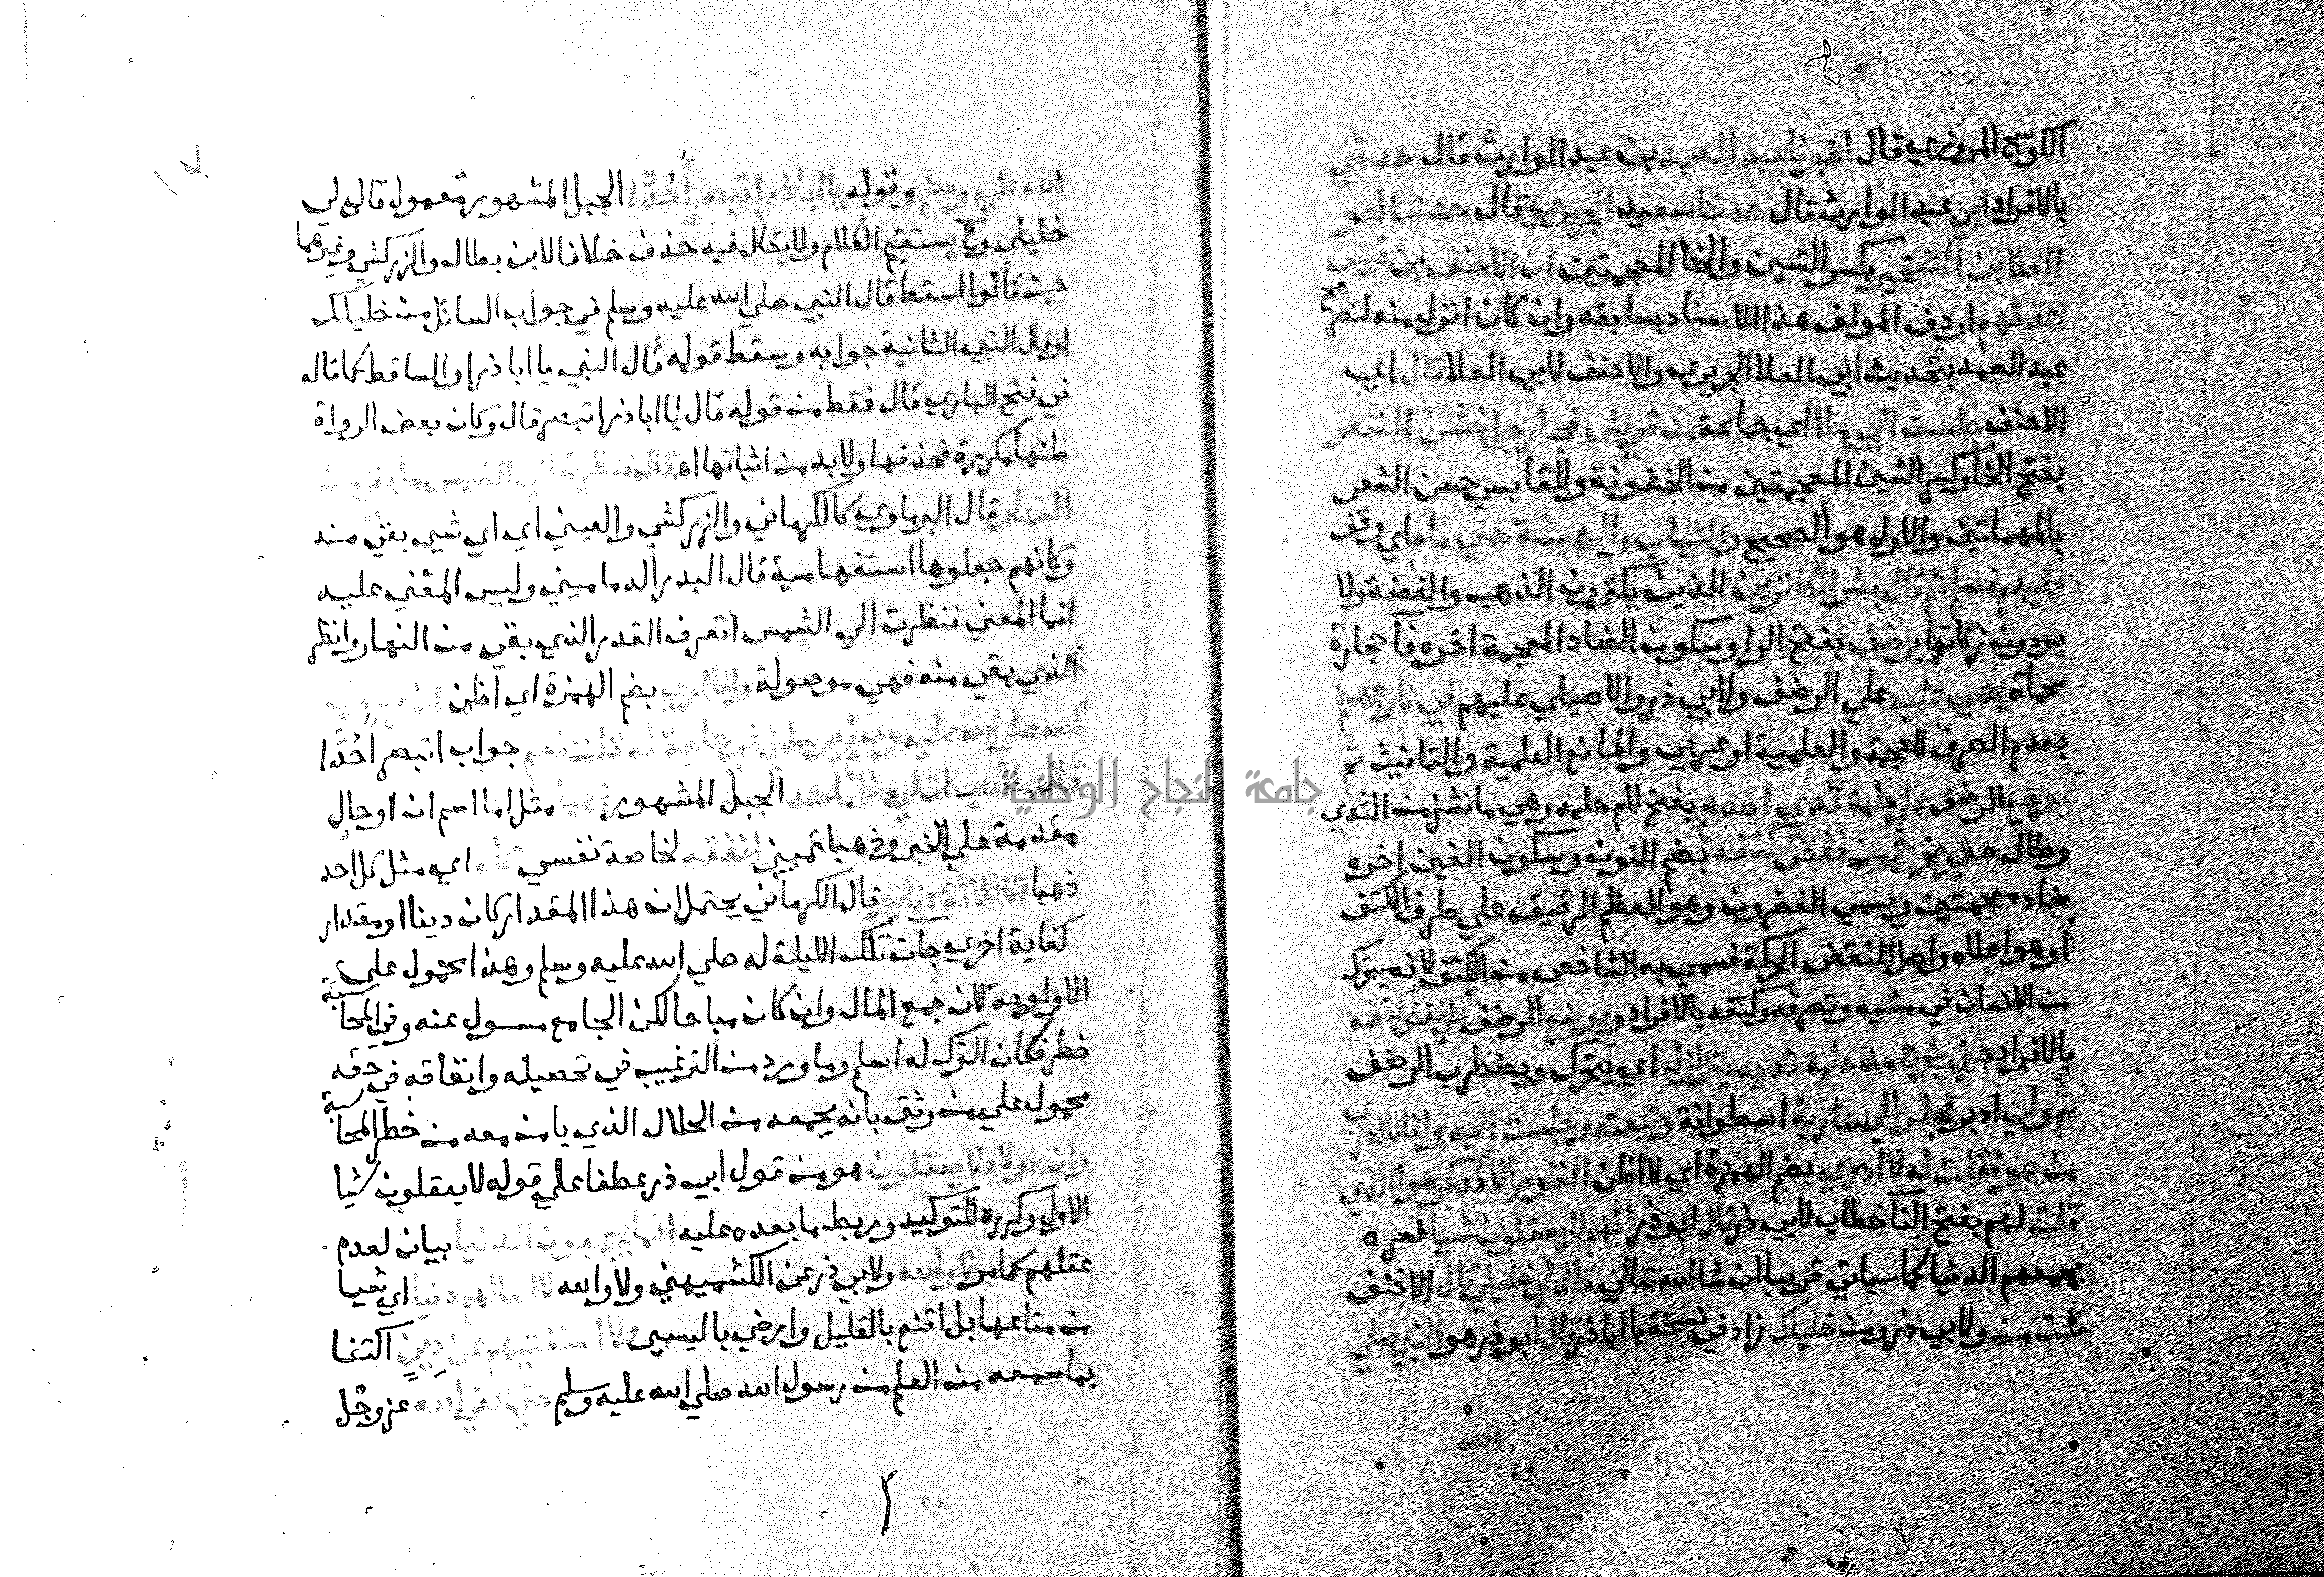 الكوسج المروزي قال اخبرنا عبد الصمد بن عبد الوارث قال حدثني
بالافراد ابي عبد الوارث قال حدثنا سعيد الجريري قال حدثنا ابو
العلا بن الشخير بكسر الشين والخا المعجمتين ان الاحنف بن قيس
حدثهم اردف المولف هذا الاسناد بسابقه وان كان انزل منه لتصريح
عبد الصمد بتحديث ابي العلا الجريري والاحنف لابي العلا قال اي
الاحنف جلست الي ملا اي جماعة من قريش فجا رجل خشن الشعر
بفتح الخا وكسر الشين المعجمتين من الخشونة وللقابسي حسن الشعر
بالمهملتين والاول هو الصحيح والثياب والهيئة حتي قام اي وقف
عليهم فسلم ثم قال بشر الكانزين الذين يكنزون الذهب والفضة ولا
يودون زكاتها برضف بفتح الرا وسكون الضاد المعجمة اخره فا حجارة
محماة يحمي عليه علي الرضف ولابي ذر والاصيلي عليهم في نار جهنم
بعدم الصرف للعجمة والعلمية او عربي والمانع العلمية والتانيث ثم
يوضع الرضف علي حلمة ثدي احدهم بفتح لام حلمه وهي ما نشز من الثدي
وطال حتي يخرج من نغض كتفه بضم النون وسكون الغين اخره
ضاد معجمتين ويسمي الغضروف وهو العظم الرقيق علي طرف الكتف
او هو اعلاه واصل النغض الحركة فسمي به الشاخص من الكتف لانه يتحرك
من الانسان في مشيه وتصرفه وكتفه بالافراد ويوضع الرضف علي نغض كتفه
بالافراد حتي يخرج من حلمة ثديه يتزلزل اي يتحرك ويضطرب الرضف
ثم ولي ادبر فجلس الي سارية اسطوانة وتبعته وجلست اليه وانا لا ادري
من هو فقلت له لا ادري بضم الهمزة اي لا اظن القوم الا قد كرهوا الذي
قلت لهم بفتح التا خطاب لابي ذر قال ابو ذر انهم لا يعقلون شيا فسره
بجمعهم الدنيا كما سياتي قريبا ان شا الله تعالي قال لي خليلي قال الاحنف
قلت من ولابي ذر ومن خليلك زاد في نسخة يا ابا ذر قال ابو ذر هو النبي صلي
الله
الله عليه وسلم وقوله يا ابا ذر اتبصر أُحُدًا الجبل المشهور معمول قال لي
خليلي وح يستقيم الكلام ولا يقال فيه حذف خلافا لابن بطال والزركشي وغيرهما
حيث قالوا اسقط قال النبي صلي الله عليه وسلم في جواب السائل من خليلك
او قال النبي الثانية جوابه وسقط قوله قال النبي يا ابا ذر او الساقط كما قاله
في فتح الباري قال فقط من قوله قال يا ابا ذر اتبصر قال وكان بعض الرواة
ظنها مكررة فحذفها ولا بد من اثباتها اه قال فنظرت الي الشمس ما بقي من
النهار قال البرماوي كالكرماني والزركشي والعيني اي اي شي بقي منه
وكانهم جعلوها استفهامية قال البدر الدماميني وليس المعني عليه
انما المعني فنظرت الي الشمس اتعرف القدر الذي بقي من النهار وانظر
الذي بقي منه فهي موصولة وانا اري بضم الهمزة اي اظن
جواب اتبصر أُحُدًا
الجبل المشهور مثل اما اسم ان او حال
مقدمة علي الخبر وذهبا تمييز انفقه لخاصة نفسي اي مثل كل احد
ذهبا الا ثلاثة دنانير قال الكرماني يحتمل ان هذا المقدار كان دينا او مقدار
كفاية اخري جات تلك الليلة له صلي الله عليه وسلم وهذا محمول علي
الاولوية لان جمع المال وان كان مباحا لكن الجامع مسول عنه وفي المحاسبة
خطر فكان الترك له اسلم وما ورد من الترغيب في تحصيله وانفاقه في حقه
محمول علي من وثق بانه يجمعه من الحلال الذي يامن معه من خطر المحاسبة
وان هولا لا يعقلون هو من قول ابي ذر عطفا علي قوله لا يعقلون شيا
الاول وكرره للتوكيد وربط ما بعده عليه انما يجمعون الدنيا بيان لعدم
عقلهم كما مر لا والله ولابي ذر عن الكشميهني ولا والله لا اسالهم دنيا اي شيا
من متاعها بل اقنع بالقليل وارضي باليسير ولا استفتيهم عن دين اكتفا
بما سمعه من العلم من رسول الله صلي الله عليه وسلم حتي القي الله عز وجل
جامعة النجاح الوطنية